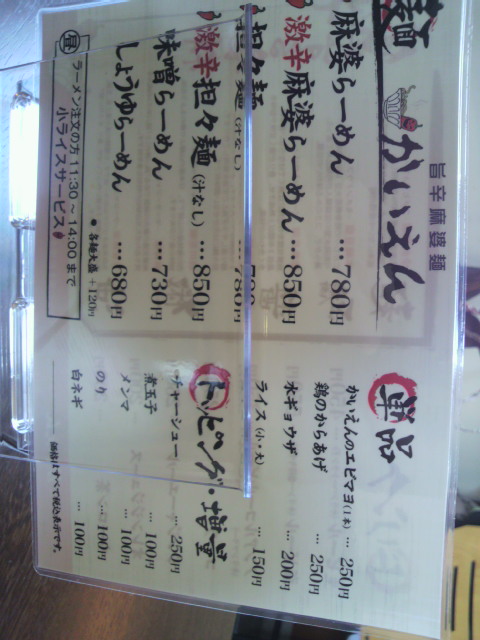 麺
旨辛麻婆麺
かいえん
麻婆らーめん …780円
激辛麻婆らーめん …850円
担々麺(汁なし) …780円
激辛担々麺(汁なし) …850円
味噌らーめん …730円
しょうゆらーめん …680円
●各麺大盛 +120円
ラーメン注文の方 11:30〜14:00まで
小ライスサービス
単品
かいえんのエビマヨ(1本) …250円
鶏のからあげ …250円
水ギョウザ …200円
ライス(小・大) …150円
トッピング・増量
チャーシュー …250円
煮玉子 …100円
メンマ …100円
のり …100円
白ネギ …100円
価格はすべて税込表示です。